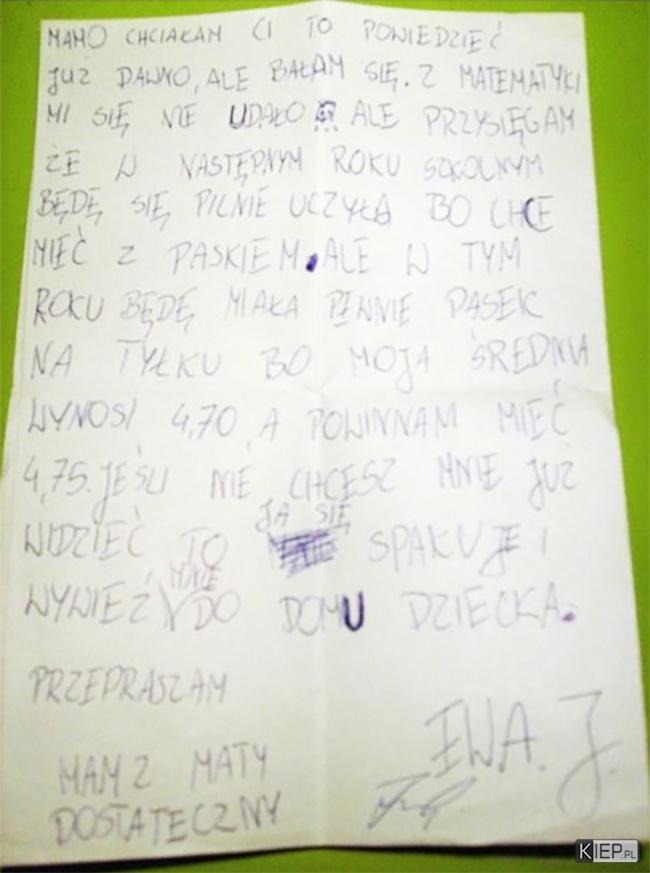 MAMO CHCIAŁAM CI TO POWIEDZIEĆ
JUŻ DAWNO, ALE BAŁAM SIĘ. Z MATEMATYKI
MI SIĘ NIE UDAŁO ALE PRZYSIĘGAM
ŻE W NASTĘPNYM ROKU SZKOLNYM
BĘDĘ SIĘ PILNIE UCZYŁA BO CHCE
MIEĆ Z PASKIEM. ALE W TYM
ROKU BĘDĘ MIAŁA PEWNIE PASEK
NA TYŁKU BO MOJA ŚREDNIA
WYNOSI 4,70 A POWINNAM MIEĆ
4,75. JEŚLI NIE CHCESZ MNIE JUŻ
WIDZIEĆ TO JA SIĘ SPAKUJE I
WYWIEŹ MNIE DO DOMU DZIECKA.
PRZEPRASZAM
EWA. J.
MAM Z MATY
DOSTATECZNY
KIEP.PL